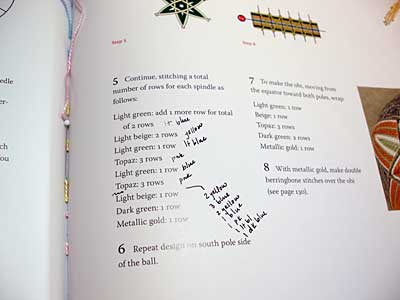 Step 5
Step 6
5 Continue, stitching a total
number of rows for each spindle as
follows:
Light green: add 1 more row for total
of 2 rows lt blue
Light beige: 2 rows yellow
Light green: 1 row lt blue
Topaz: 3 rows pnk
Light green: 1 row blue
Topaz: 3 rows pnk
Light beige: 1 row
Dark green: 1 row
Metallic gold: 1 row
2 yellow
3 blue
2 yellow
1 blue
1 pk
1 lt bl
1 dk blue
6 Repeat design on south pole side
of the ball.
7 To make the obi, moving from
the equator toward both poles, wrap:
Light green: 1 row
Beige: 1 row
Topaz: 3 rows
Dark green: 2 rows
Metallic gold: 1 row
8 With metallic gold, make double
herringbone stitches over the obi
(see page 130).